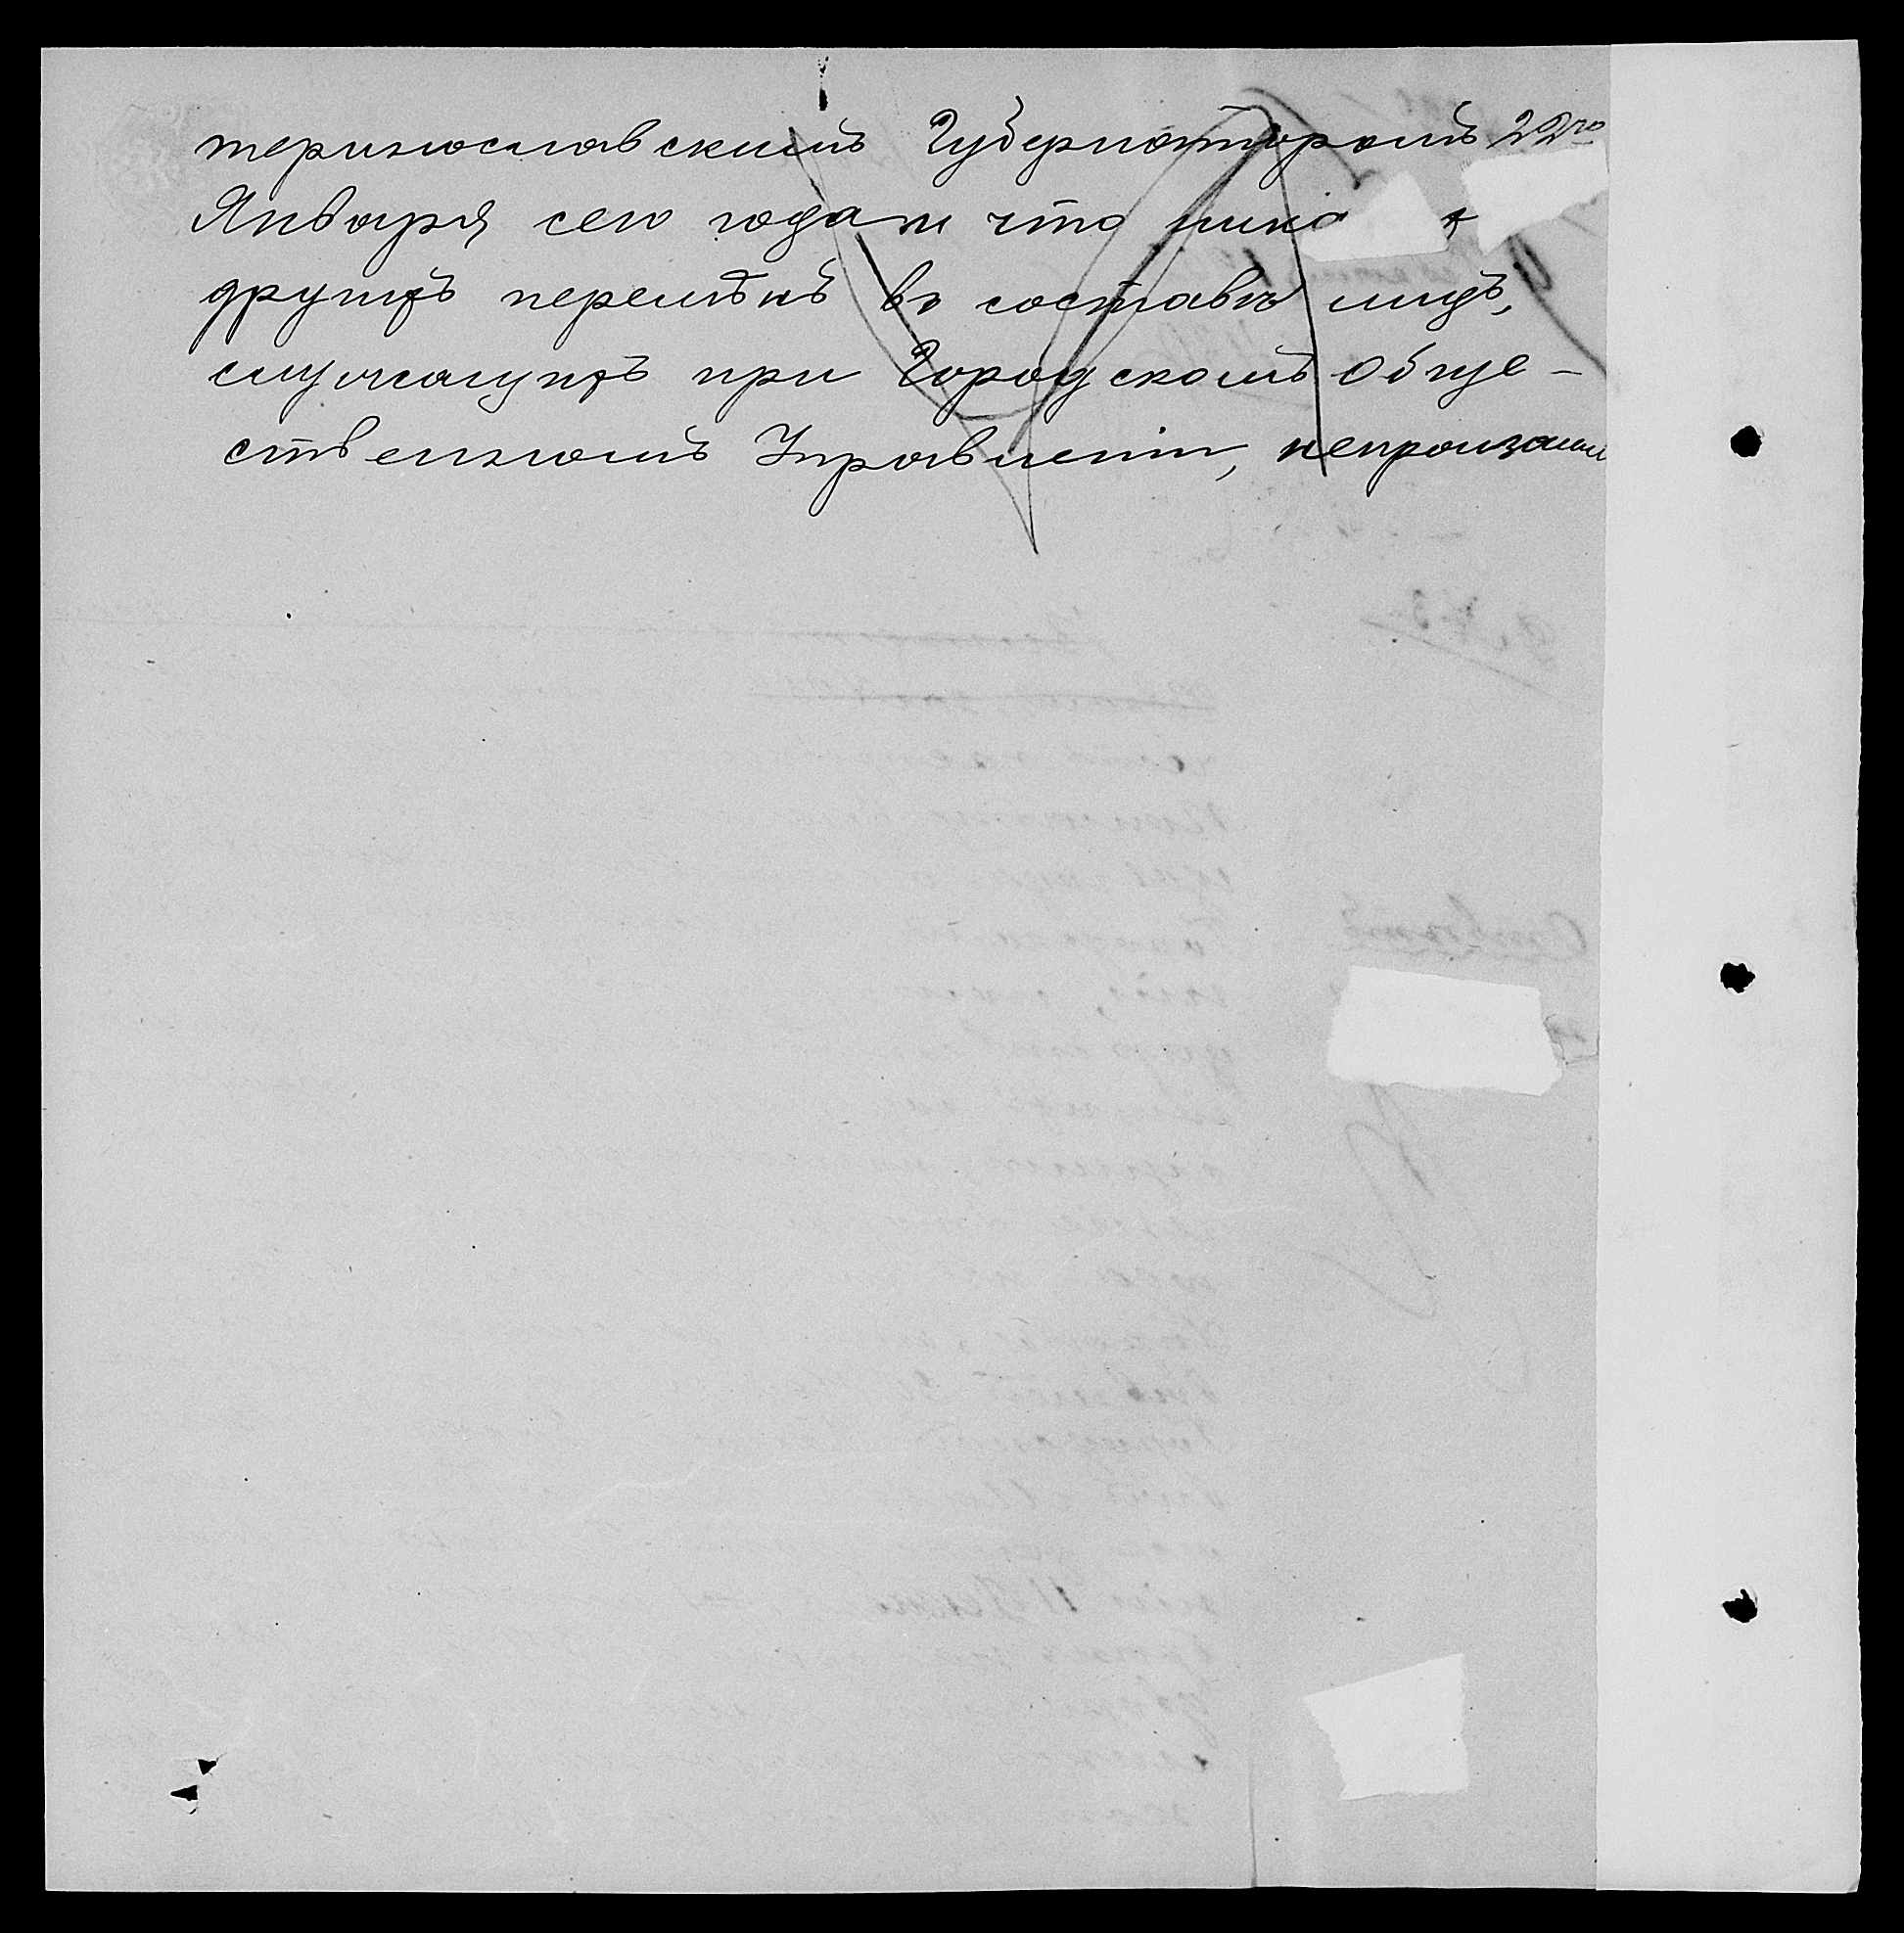 теринославскимъ Губернаторомъ 22го
Января сего года и что
другихъ перемѣнъ въ составѣ лицъ,
служащихъ при Городскомъ Обще-
ственномъ Управленіи, непроизошло